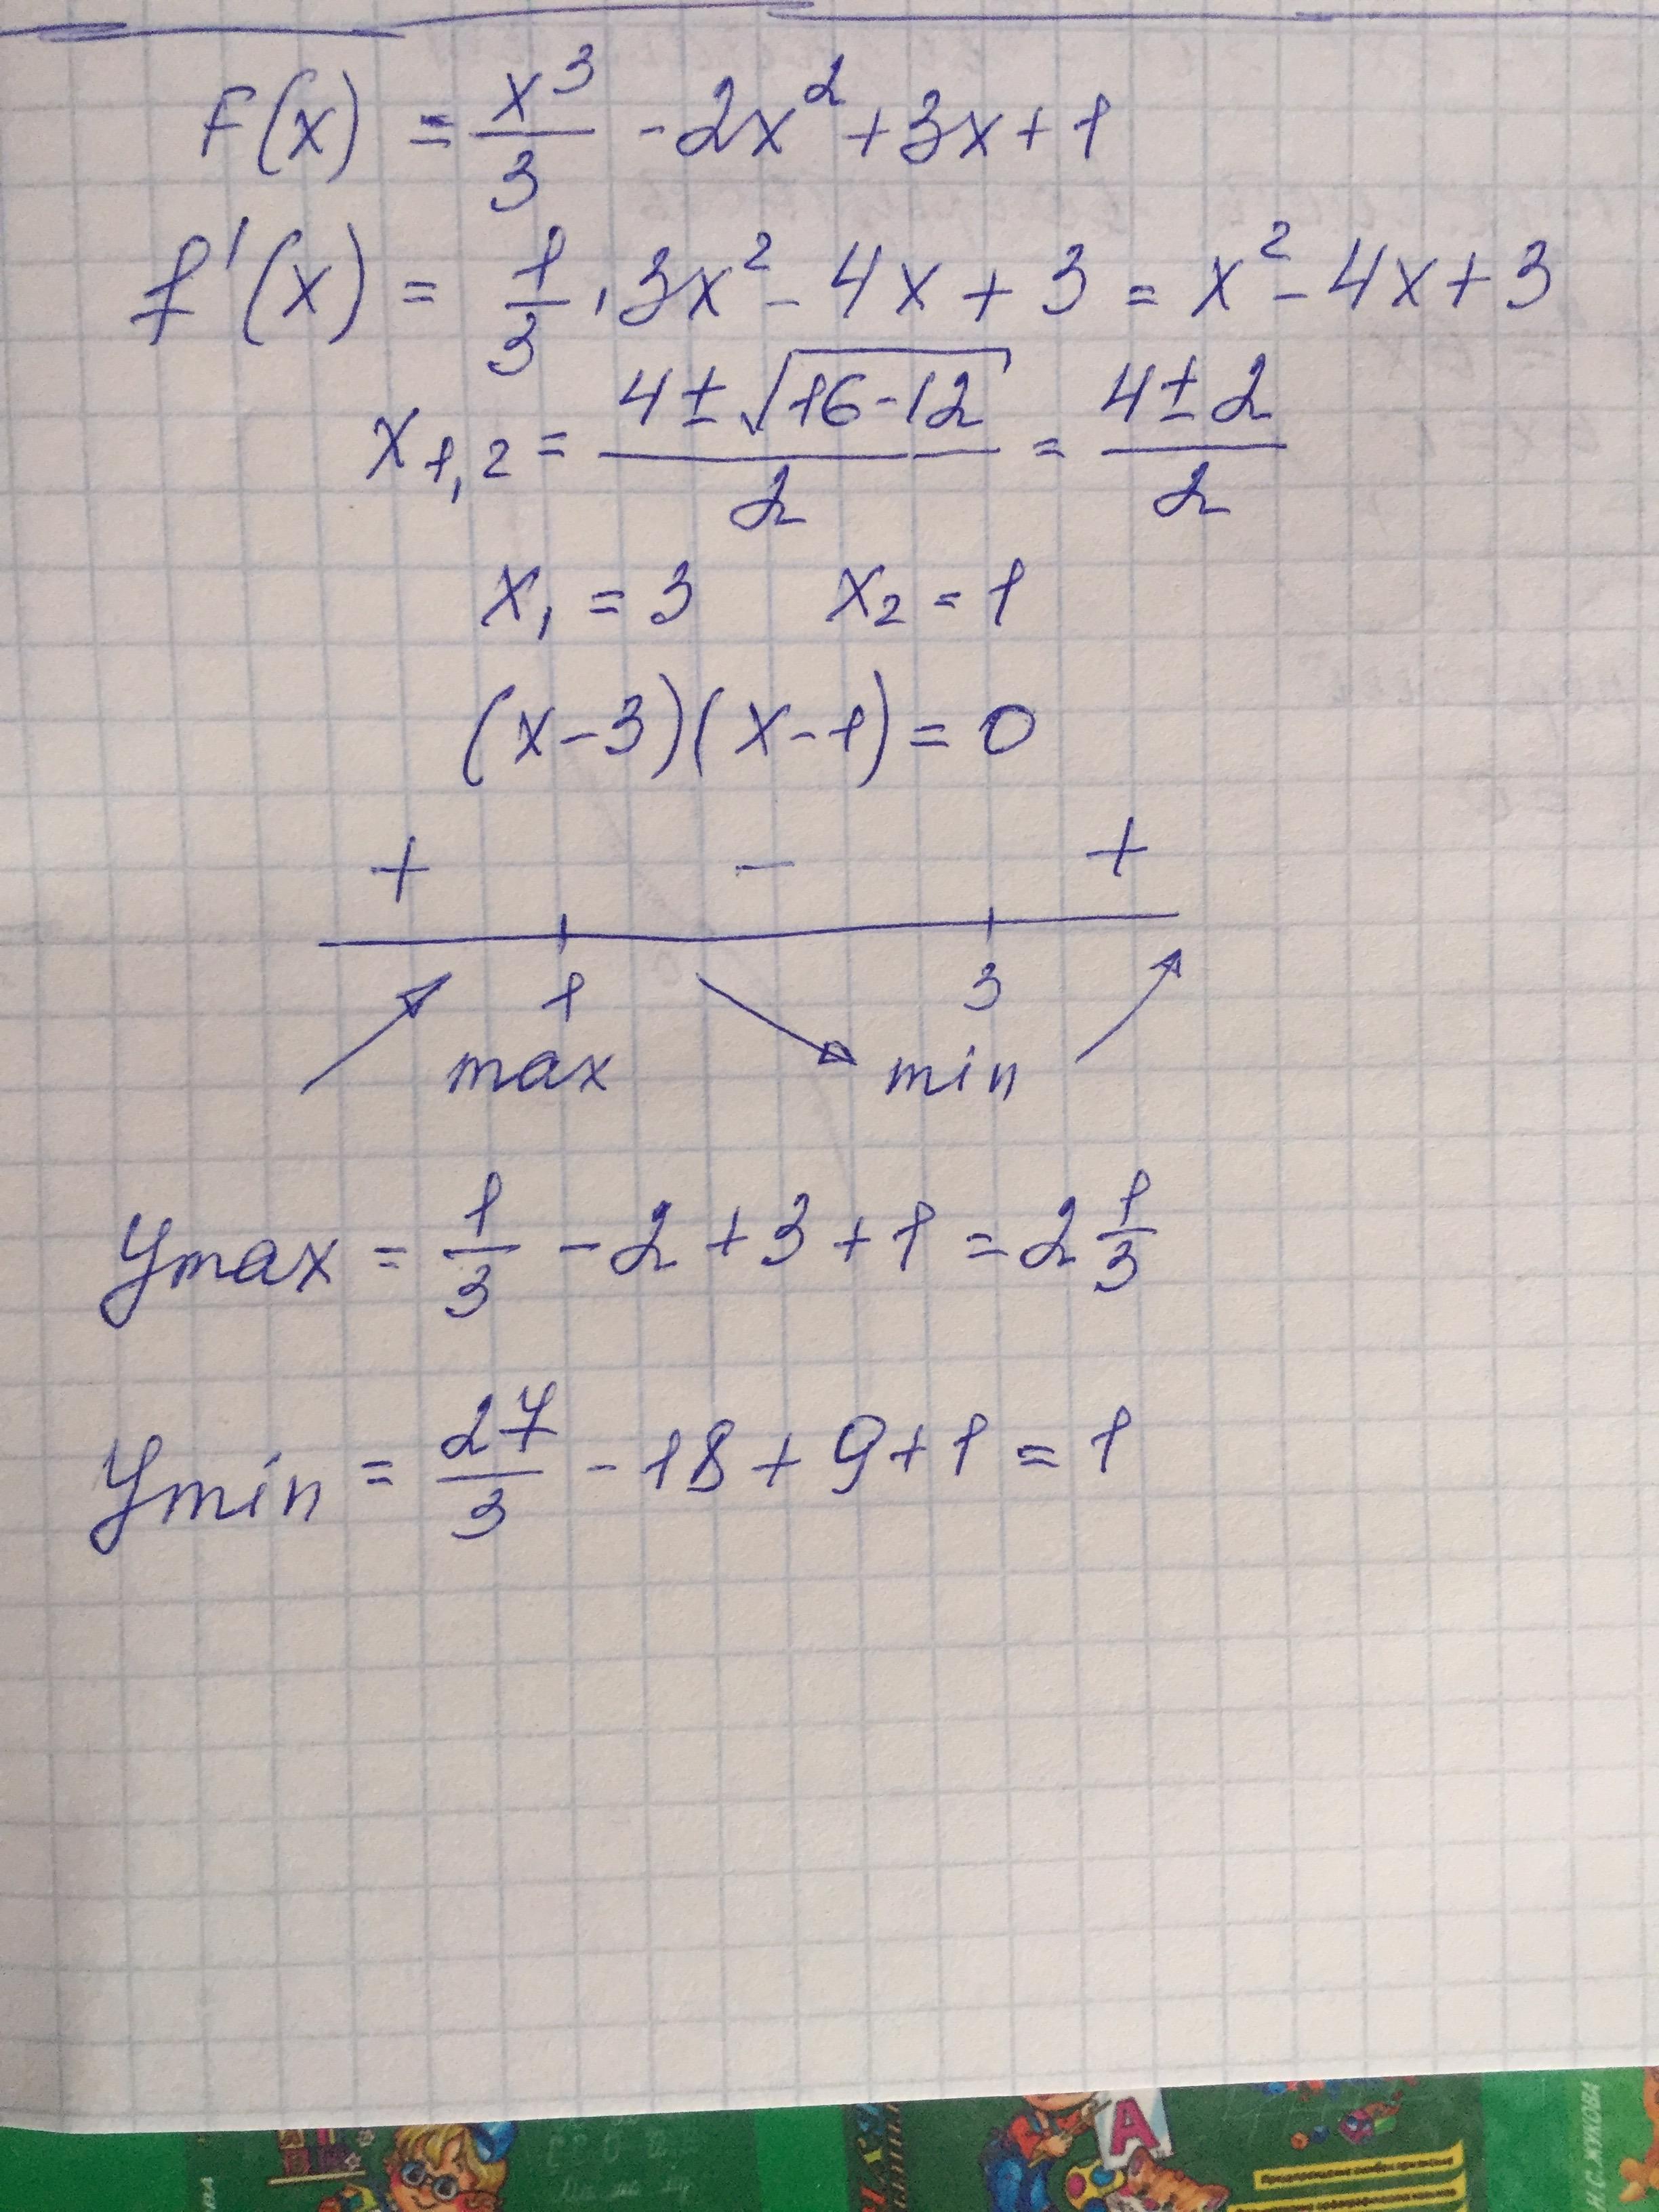 F(x) = x³/3 - 2x² + 3x + 1
f'(x) = 1/3 · 3x² - 4x + 3 = x² - 4x + 3
x₁,₂ = (4 ± √(16-12))/2 = (4 ± 2)/2
x₁ = 3 x₂ = 1
(x-3)(x-1) = 0
+ - +
1 3
max min
ymax = 1/3 - 2 + 3 + 1 = 2 1/3
ymin = 27/3 - 18 + 9 + 1 = 1
А
И С. ЖУКОВА